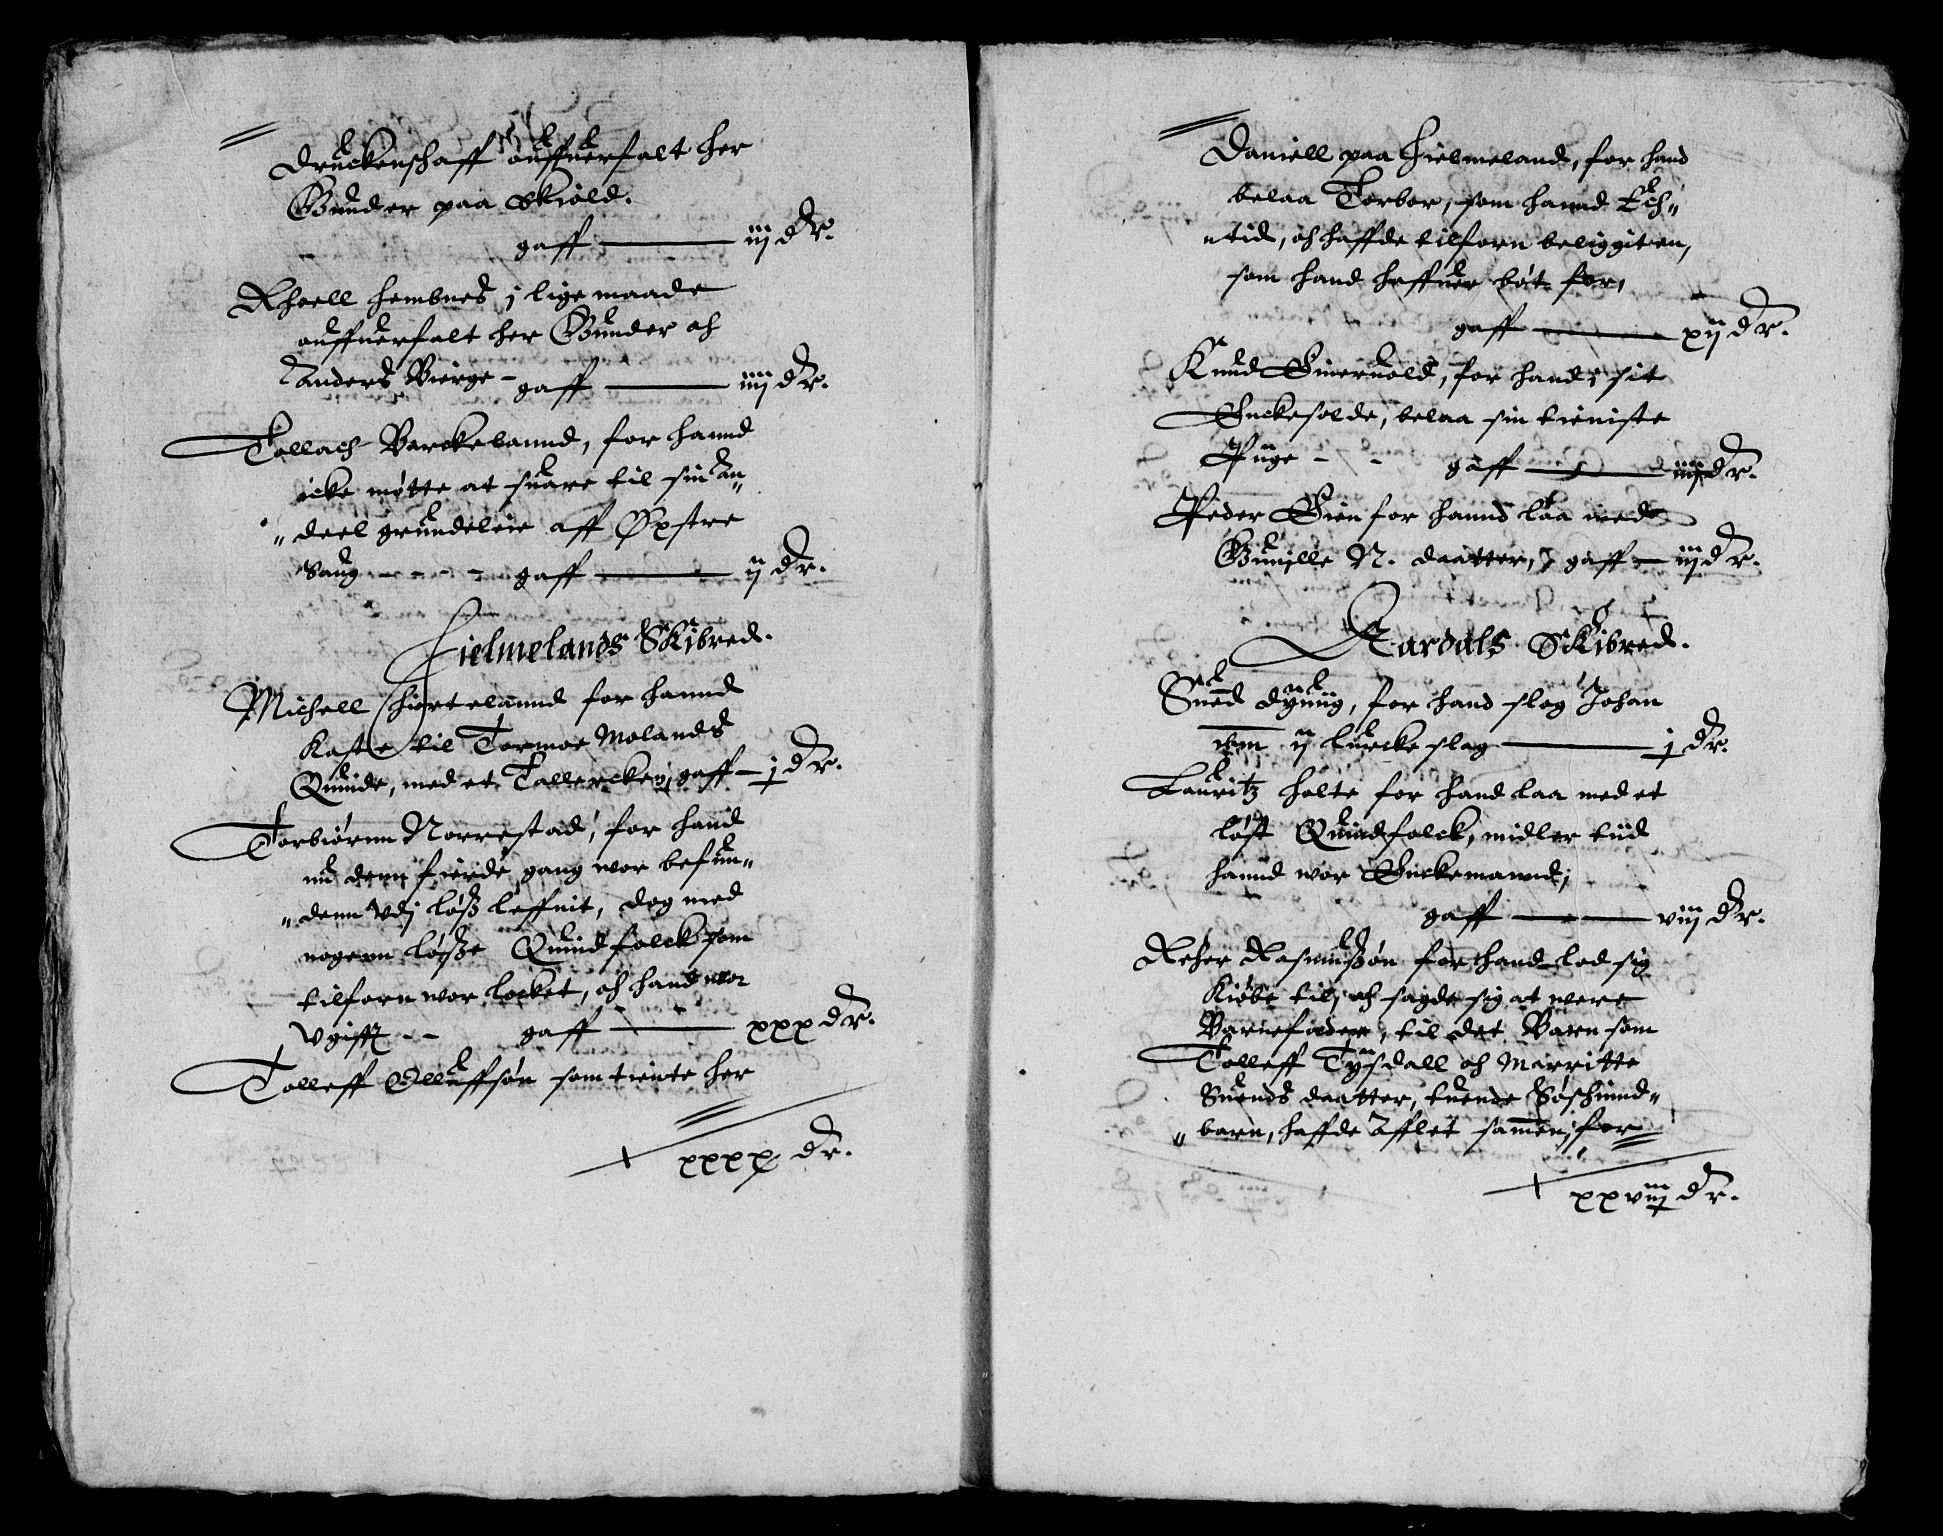 Druckenschaff offuerfalt her
Gunder paa Skiold.
gaff — iij dr.
Rhoell Hembnes j lige maade
offuerfalt her Gunder och
Anders Bierge - gaff — iiij dr.
Tollach Barckelannd, for hannd
icke møtte at suare til sin an„
„deel grundeleie aff Øxstre
Saug - - - - gaff — ij dr.
Hielmelands Skibred.
Michell Hiortelannd for hannd
Kaste til Tormoe Molands
Quinde, med et Tallercken, gaff — j dr.
Torbiørnn Norrestad, for hand
nu denn fierde gang wor befun„
„denn vdj løß leffnit, dog med
nogenn løsse Quindfolck som
tilforn wor locket, och hand wor
Vgifft - - gaff — xxx dr.
Tolleff Olluffsøn som tiente her
xxxx dr.
Daniell paa Hielmeland, for hand
belaa Torbor, som hannd Ech„
ntid, och haffde tilforn beliggit en,
som hand haffuer bøt for,
gaff — xij dr.
Knud Sueruold, for hand i sit
Enckesolde, belaa sin tieniste
Pige - - gaff — iiij dr.
Peder Eien for hannd laa med
Gunille N. daatter, gaff — iij dr.
Aardals Skibred.
Suend Dyuing, for hand slog Johan
ibm ij lurcke slag — j dr.
Lauritz Holte for hand laa med et
løst Quindfolck, midler tiid
hannd wor Enckemannd,
gaff — viij dr.
Reher Rasmußøn for hand lod sig
Kiøbe til, och sagde sig at were
Barnefader, til det Barn som
Tolleff Tysdall och Marritte
Suends daatter, tuende Søschind„
„barn, haffde Afflet sammen, for
xxviij dr.